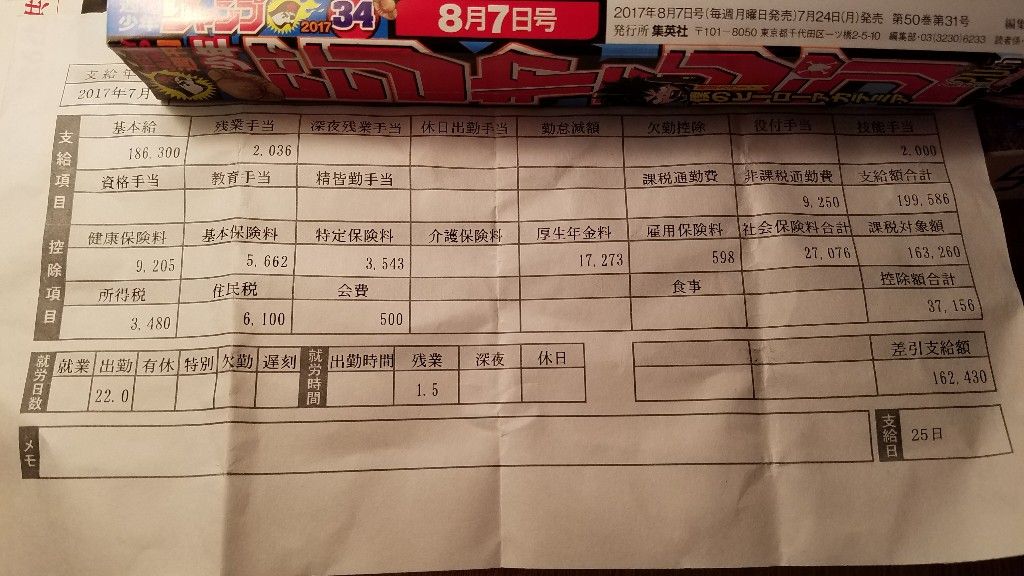 少年
ジャンプ
2017
34
8月7日号
2017年8月7日号(毎週月曜日発売)7月24日(月)発売 第50巻第31号
発行所 集英社 〒101-8050 東京都千代田区一ツ橋2-5-10 編集部・03(3230)6233
ジャンプ
僕のヒーローアカデミア
支給年
2017年7月
支給項目
基本給 残業手当 深夜残業手当 休日出勤手当 勤怠減額 欠勤控除 役付手当 技能手当
186,300 2,036 2,000
資格手当 教育手当 精皆勤手当 課税通勤費 非課税通勤費 支給額合計
9,250 199,586
控除項目
健康保険料 基本保険料 特定保険料 介護保険料 厚生年金料 雇用保険料 社会保険料合計 課税対象額
9,205 5,662 3,543 17,273 598 27,076 163,260
所得税 住民税 会費 食事 控除額合計
3,480 6,100 500 37,156
就労日数 就業 出勤 有休 特別 欠勤 遅刻 就労時間 出勤時間 残業 深夜 休日 差引支給額
22.0 1.5 162,430
メモ 支給日 25日